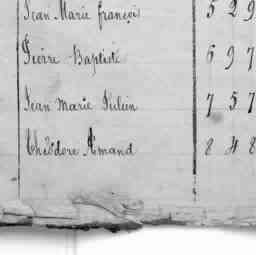 Jean Marie françois 5 2 9
Pierre Baptiste 6 9 7
Jean Marie Julien 7 5 7
Théodore Amand 8 4 8